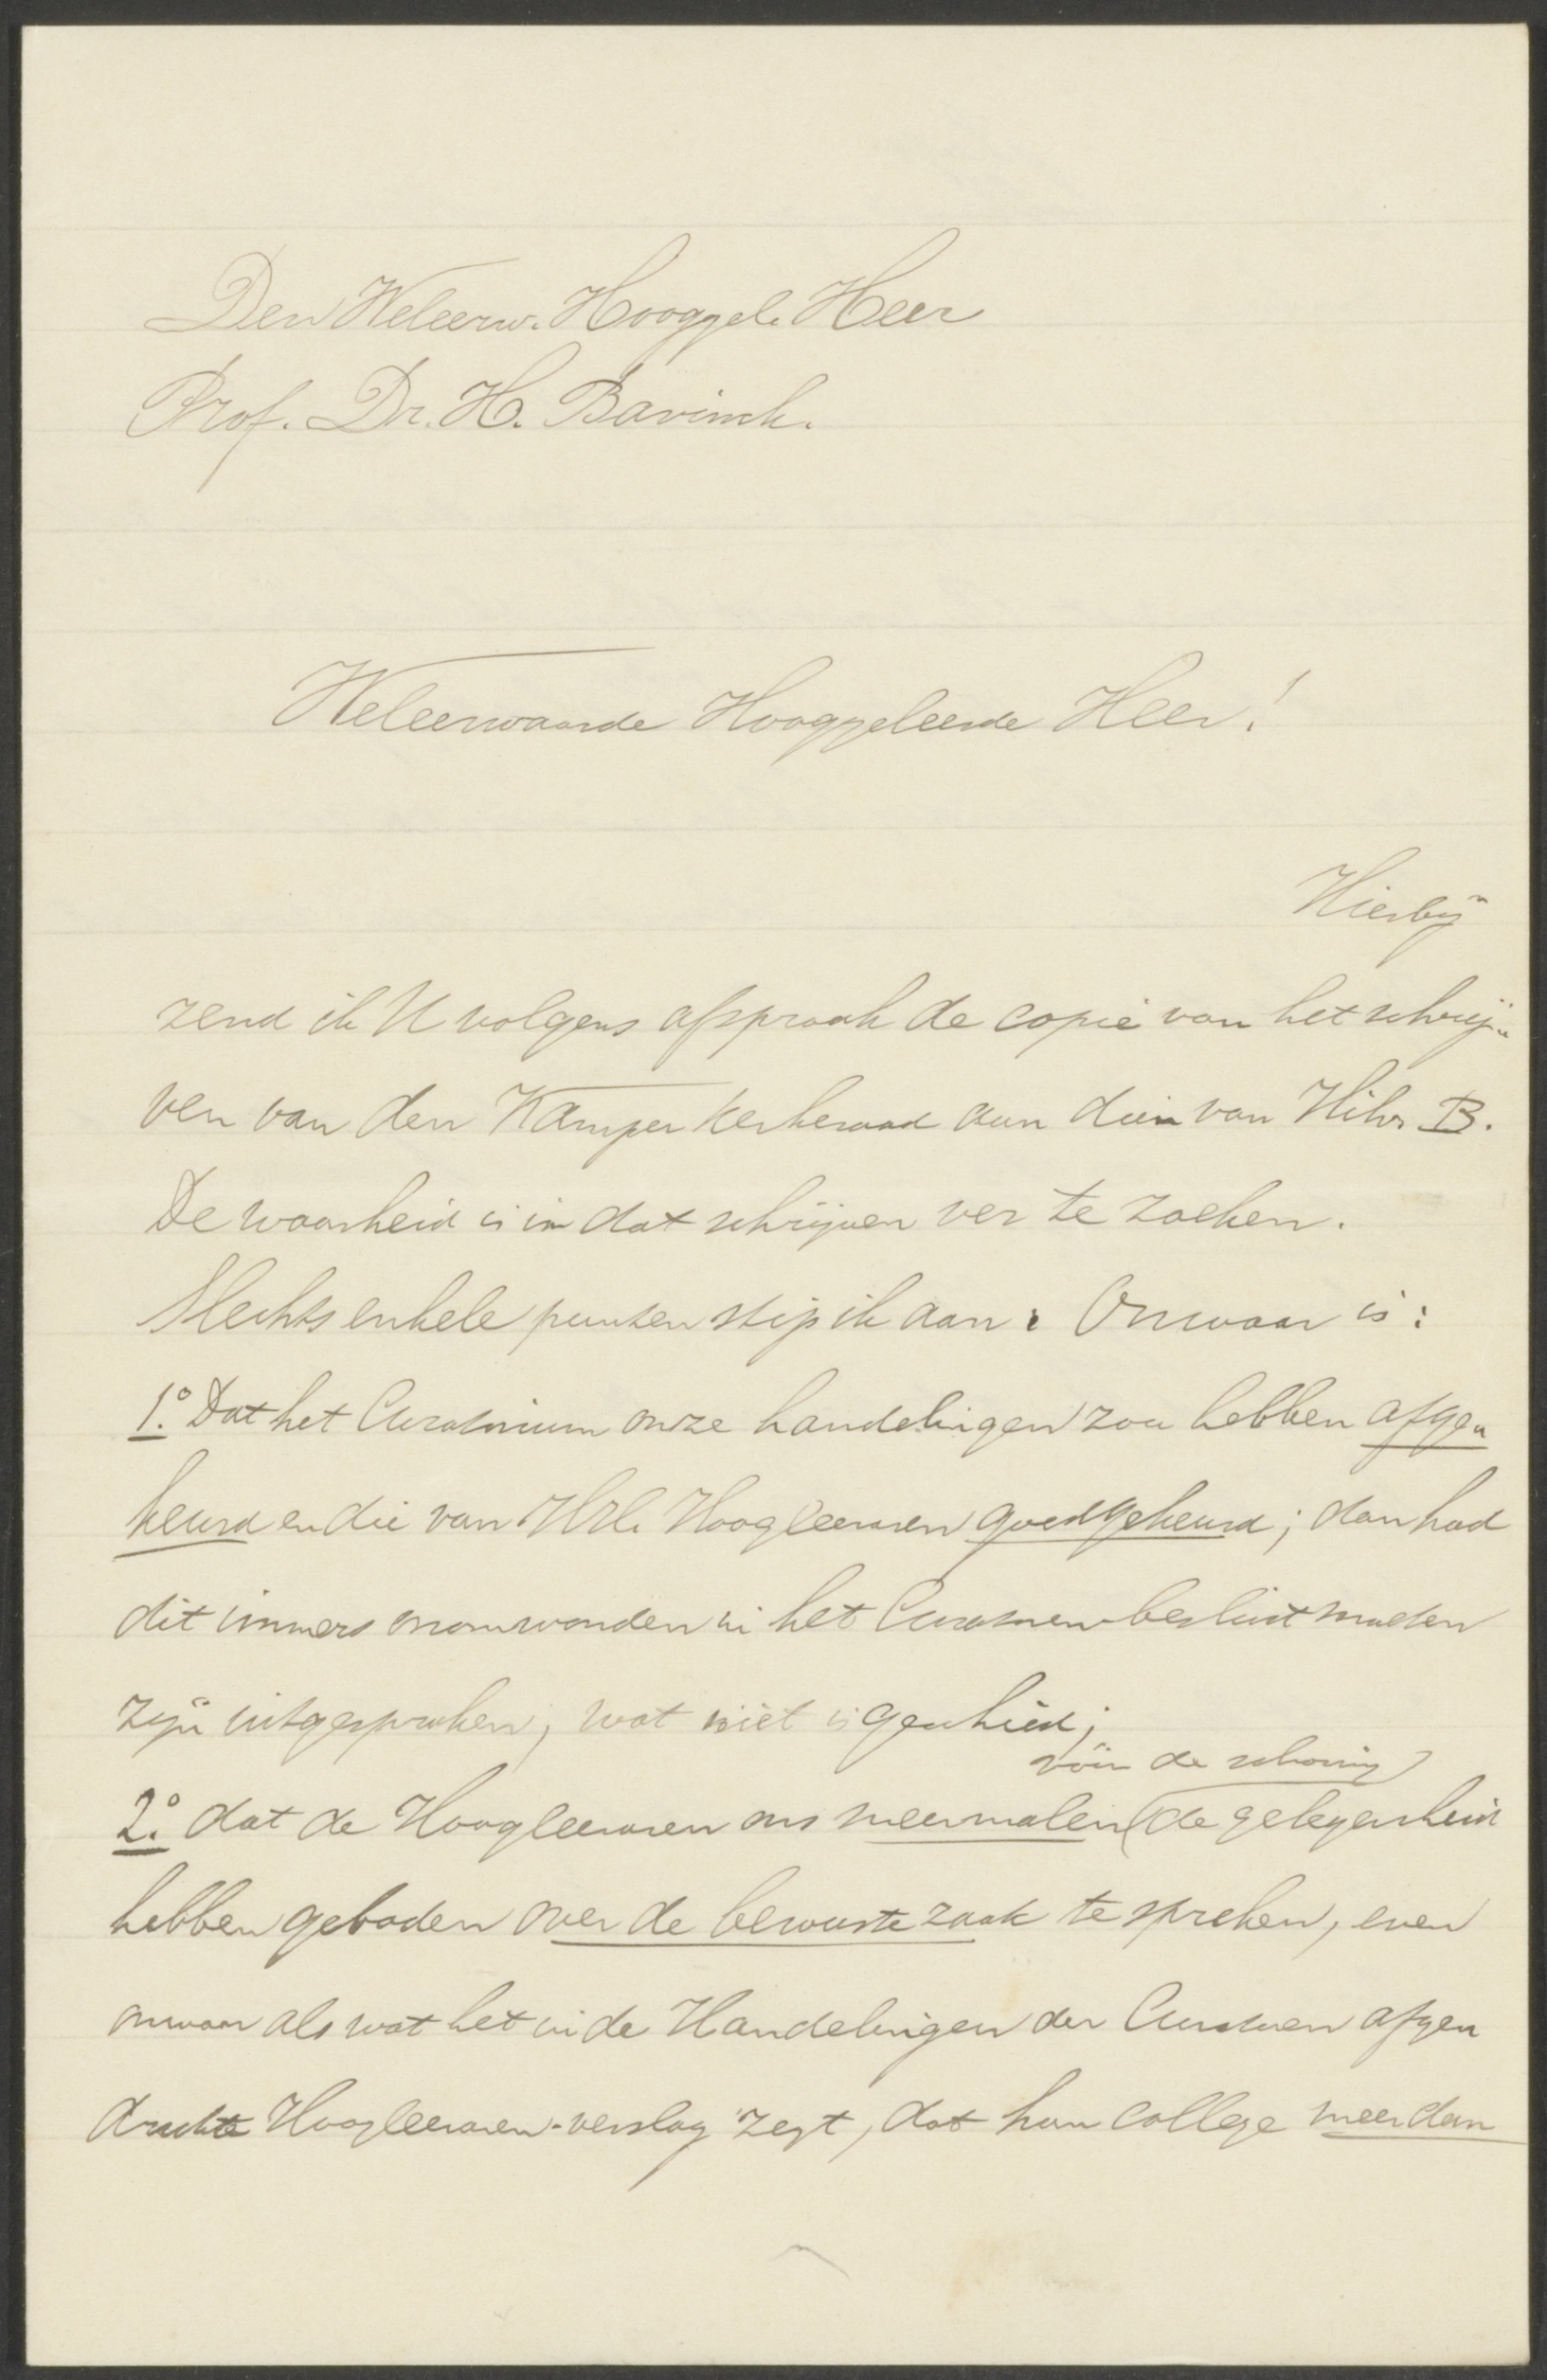 Den Weleerw. Hooggel. Heer
Prof. Dr. H. Bavinck.
Weleerwaarde Hooggeleerde Heer!
Hierbij
zend ik U volgens afspraak de copie van het schrij-
ven van den Kamper kerkeraad aan dien van Hilv. B.
De waarheid is in dat schrijven ver te zoeken.
Slechts enkele punten stip ik aan: Onwaar is:
1.° Dat het Curatorium onze handelingen zou hebben afge-
keurd en die van HH. Hoogleeraren goedgekeurd; dan had
dit immers onomwonden in het Curatoren-besluit moeten
zijn uitgesproken, wat niet is geschied;
vóór de schorsing
2.° dat de Hoogleeraren ons meermalen (de gelegenheid
hebben geboden over de bewuste zaak te spreken, even
onwaar als wat het in de Handelingen der Curatoren afge-
drukte Hoogleeraren-verslag zegt, dat hun college meer dan